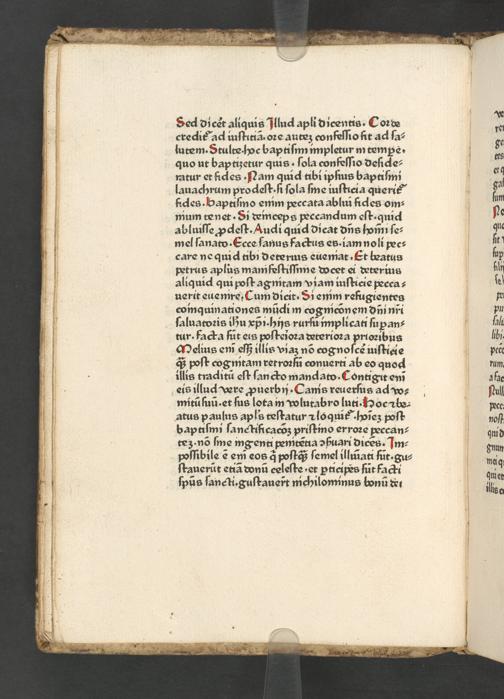 Sed dicẽt aliquis Illud apli dicentis. Corde
credit̃ ad iusticiã. ore autez confessio fit ad sa⸗
lutem. Stulte. hoc baptism impletur in tempe⸗
quo ut baptizetur quis. sola confessio deside⸗
ratur et fides. Nam quid tibi ipsius baptismi
lauachrum prodest. si sola sine iusticia querit̃
fides. baptismo enim peccata ablui fides om⸗
nium tenet. Si deinceps peccandum est. quid
abluisse ꝓdest. Audi quid dicat dñs homĩ se⸗
mel sanato. Ecce sanus factus es. iam noli pec⸗
care ne quid tibi deterius eueniat. Et beatus
petrus aplus manifestissime docet ei deterius
aliquid qui post agnitam viam iusticie pecca⸗
uerit euenire. Cum dicit. Si enim refugientes
coinquinationes mũdi in cognicõnem dñi nr̃i
saluatoris ihũ xp̃i. hijs rursũ implicati suꝑan⸗
tur. facta sũt eis posteriora deteriora prioribus
Melius em̃ ess̃ illis viaz nõ cognoscẽ iusticie
q̃ʒ post cognitam retrorsũ conuerti ab eo quod
illis traditũ est sancto mandato. Contigit em̃
eis illud vere ꝓuerbij. Canis reuersus ad vo⸗
mitũ suũ. et sus lota in volutabro luti. Hoc ⁊ be⸗
atus paulus apl̃s testatur ⁊ loquit̃. hoĩez post
baptismi sanctificacõz pristino errore peccan⸗
tez. nõ sine ingenti penitẽtia ꝯseruari dicẽs. Im⸗
possibile ẽ em̃ eos q̃ postq̃ʒ semel illuĩati sũt. gu⸗
stauerũt etiã donũ celeste. et ꝑticipes sũt facti
spũs sancti. gustauer̃t nichilominus bonũ dei